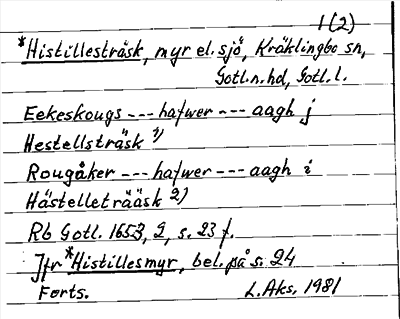 1(2)
*Histillesträsk, myr el. sjö, Kräklingbo sn,
Gotl.n.hd, Gotl.l.
Eekeskougs --- hafwer --- aagh j
Hestellsträsk 1)
Rougåker --- hafwer --- aagh i
Hästelleträäsk 2)
Rb Gotl. 1653, 2, s. 23 f.
Jfr *Histillesmyr, bel. på s. 24
Forts. L. Aks. 1981